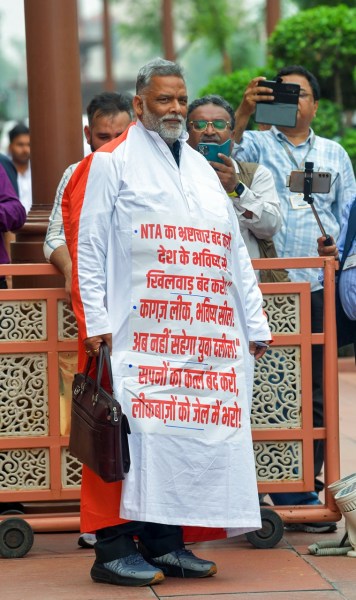 • NTA का भ्रष्टाचार बंद करो,
देश के भविष्य से
खिलवाड़ बंद करो!"
• कागज़ लीक, भविष्य सील!
अब नहीं सहेगा युवा दलील!"
• सपनों का कत्ल बंद करो,
लीकबाज़ों को जेल में भरो!